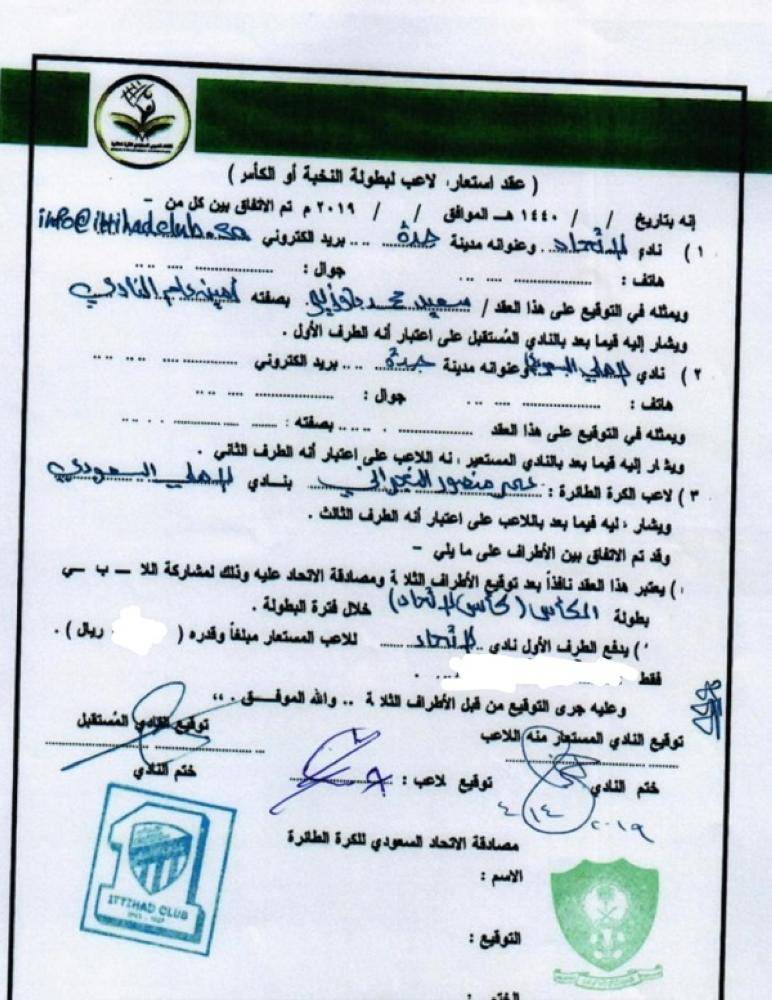 ( عقد استعار، لاعب لبطولة النخبة أو الكأس )
إنه بتاريخ / / ١٤٤٠ هـ الموافق / / ٢٠١٩ م تم الاتفاق بين كل من -
١ ) نادي الاتحاد وعنوانه مدينة جدة .... بريد الكتروني info@ittihadclub.sa
هاتف : .................... جوال : ....................
ويمثله في التوقيع على هذا العقد / سعيد محمد بصفته أمين عام النادي
ويشار إليه فيما بعد بالنادي المُستقبل على اعتبار أنه الطرف الأول .
٢ ) نادي الأهلي السعودي وعنوانه مدينة جدة .... بريد الكتروني ....................
هاتف : .................... جوال : ....................
ويمثله في التوقيع على هذا العقد .................... بصفته : ....................
ويشار إليه فيما بعد بالنادي المستعير، نه اللاعب على اعتبار أنه الطرف الثاني .
٣ ) لاعب الكرة الطائرة : عمر منصور النجراني بنادي الأهلي السعودي
ويشار ، ليه فيما بعد باللاعب على اعتبار أنه الطرف الثالث .
وقد تم الاتفاق بين الأطراف على ما يلي -
) يعتبر هذا العقد نافذاً بعد توقيع الأطراف الثلا ة ومصادقة الاتحاد عليه وذلك لمشاركة اللا ـ ب ـي
بطولة الكأس ( كأس الاتحاد ) خلال فترة البطولة .
) يدفع الطرف الأول نادي الاتحاد للاعب المستعار مبلغاً وقدره ( ريال ) .
فقط
وعليه جرى التوقيع من قبل الأطراف الثلا ة .. والله الموفـــق . ،،
توقيع النادي المستعار منه اللاعب توقيع النادي المُستقبل
ختم النادي توقيع لاعب : ختم النادي
٢٠١٩ ٤ ١٤
مصادقة الاتحاد السعودي للكرة الطائرة
الاسم :
ITTIHAD CLUB
التوقيع :
الختم :